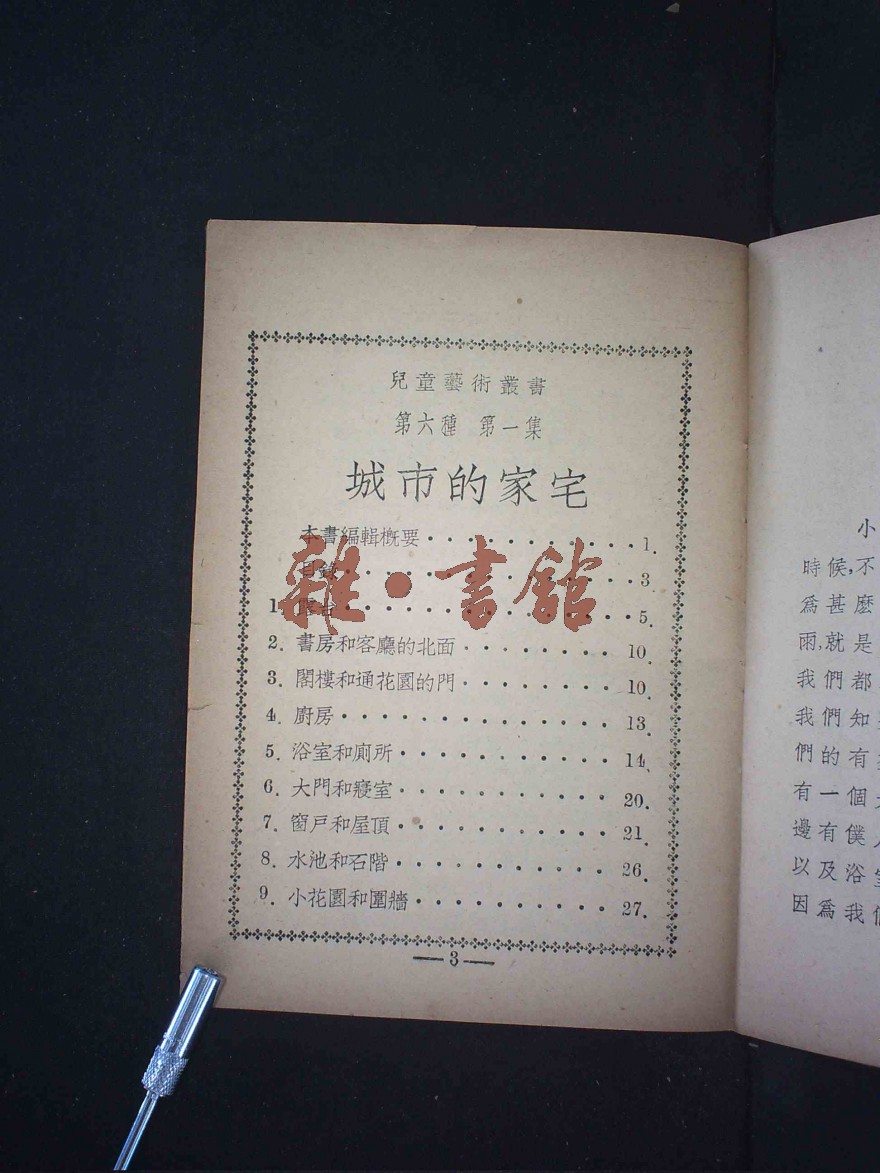 兒童藝術叢書
第六種 第一集
城市的家宅
本書編輯概要・・・・・・・・・・・1.
目錄・・・・・・・・・・・・・・3
1. 露台・・・・・・・・・・・・・5.
2. 書房和客廳的北面・・・・・・・10.
3. 閣樓和通花園的門・・・・・・・10.
4. 廚房・・・・・・・・・・・・・13.
5. 浴室和廁所・・・・・・・・・・14.
6. 大門和寢室・・・・・・・・・・20.
7. 窗戸和屋頂・・・・・・・・・・21.
8. 水池和石階・・・・・・・・・・26.
9. 小花園和圍牆・・・・・・・・・27.
—3—
雜・書館
小
時候,不
爲甚麼
雨,就是
我們都
我們知
們的有
有一個
邊有僕
以及浴
因爲我